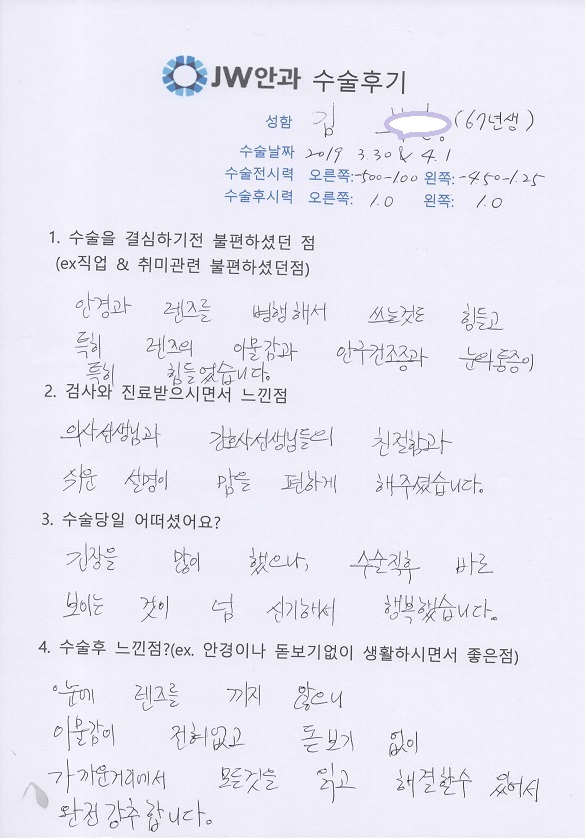 JW안과 수술후기
성함 김 (67년생)
수술날짜 2019 3.30 & 4.1
수술전시력 오른쪽:-500-100 왼쪽:-4.50-1.25
수술후시력 오른쪽: 1.0 왼쪽: 1.0
1. 수술을 결심하기전 불편하셨던 점
(ex직업 & 취미관련 불편하셨던점)
안경과 렌즈를 병행해서 쓰는것도 힘들고
특히 렌즈의 이물감과 안구건조증과 눈의통증이
특히 힘들었습니다.
2. 검사와 진료받으시면서 느낀점
의사선생님과 간호사선생님들의 친절함과
쉬운 설명이 맘을 편하게 해주셨습니다.
3. 수술당일 어떠셨어요?
긴장을 많이 했으나, 수술직후 바로
보이는 것이 넘 신기해서 행복했습니다.
4. 수술후 느낀점?(ex. 안경이나 돋보기없이 생활하시면서 좋은점)
눈에 렌즈를 끼지 않으니
이물감이 전혀없고 돋보기 없이
가까운거리에서 모든것을 읽고 해결할수 있어서
완전강추합니다.